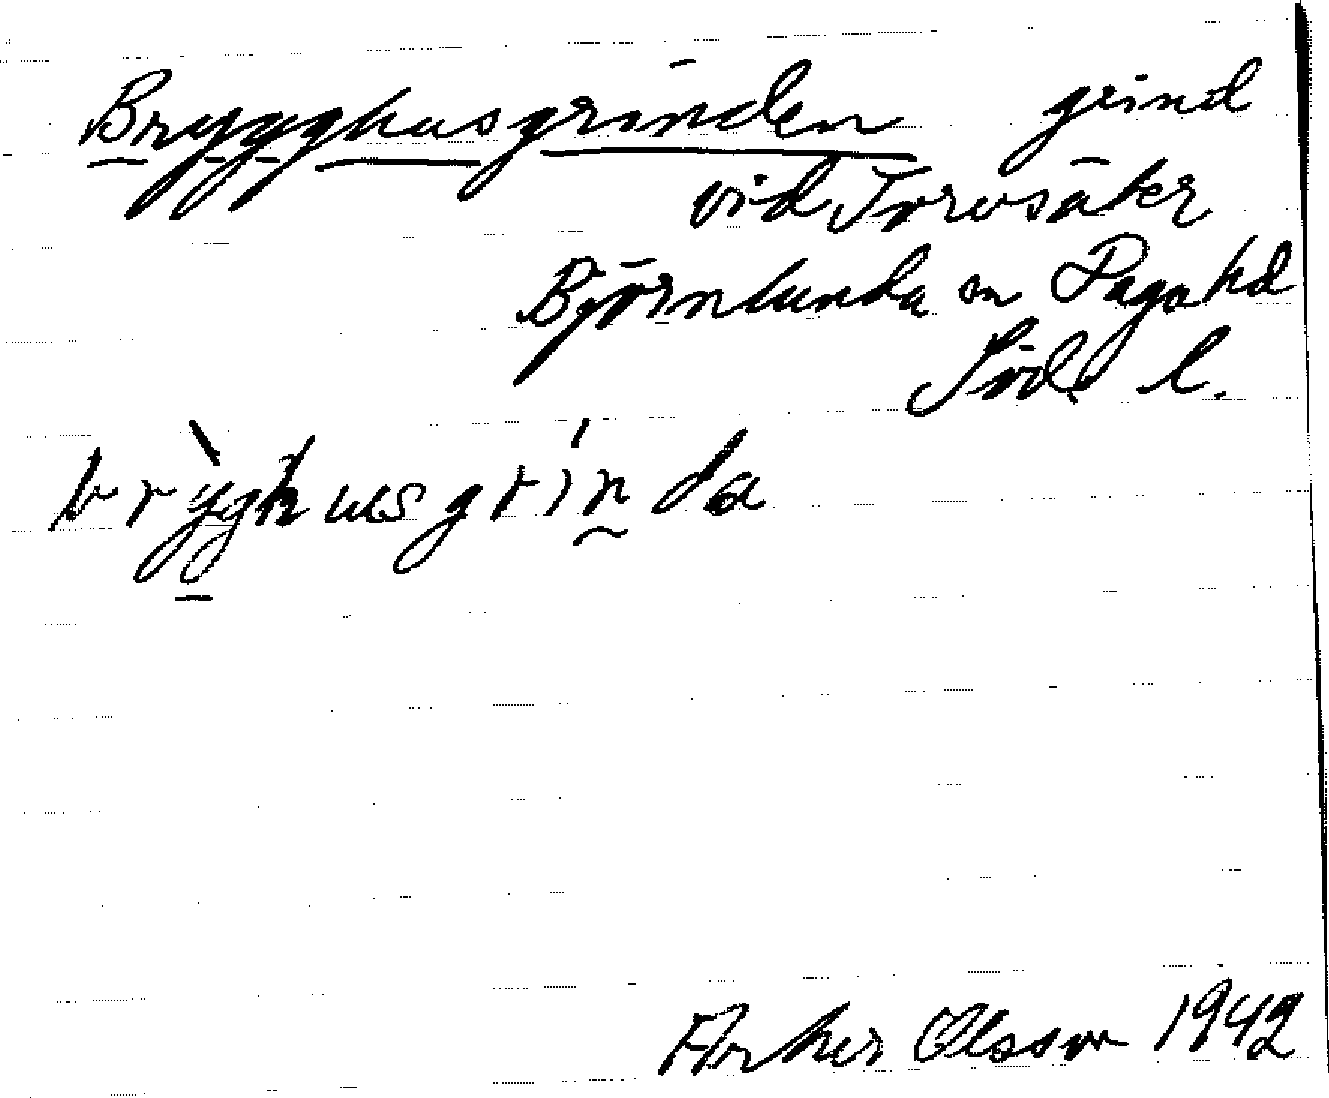 Brygghusgrinden grind
vid Torvsäter
Björnlunda sn Daga hd
Södl l.
brỳghusgrinda
Olsson 1942